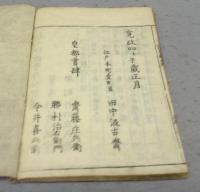 寛政四壬子歳正月
江戸本町壱丁目
田中汲古齋
皇都書肆
齋藤庄兵衛
勝村治右衛門
今井喜兵衛